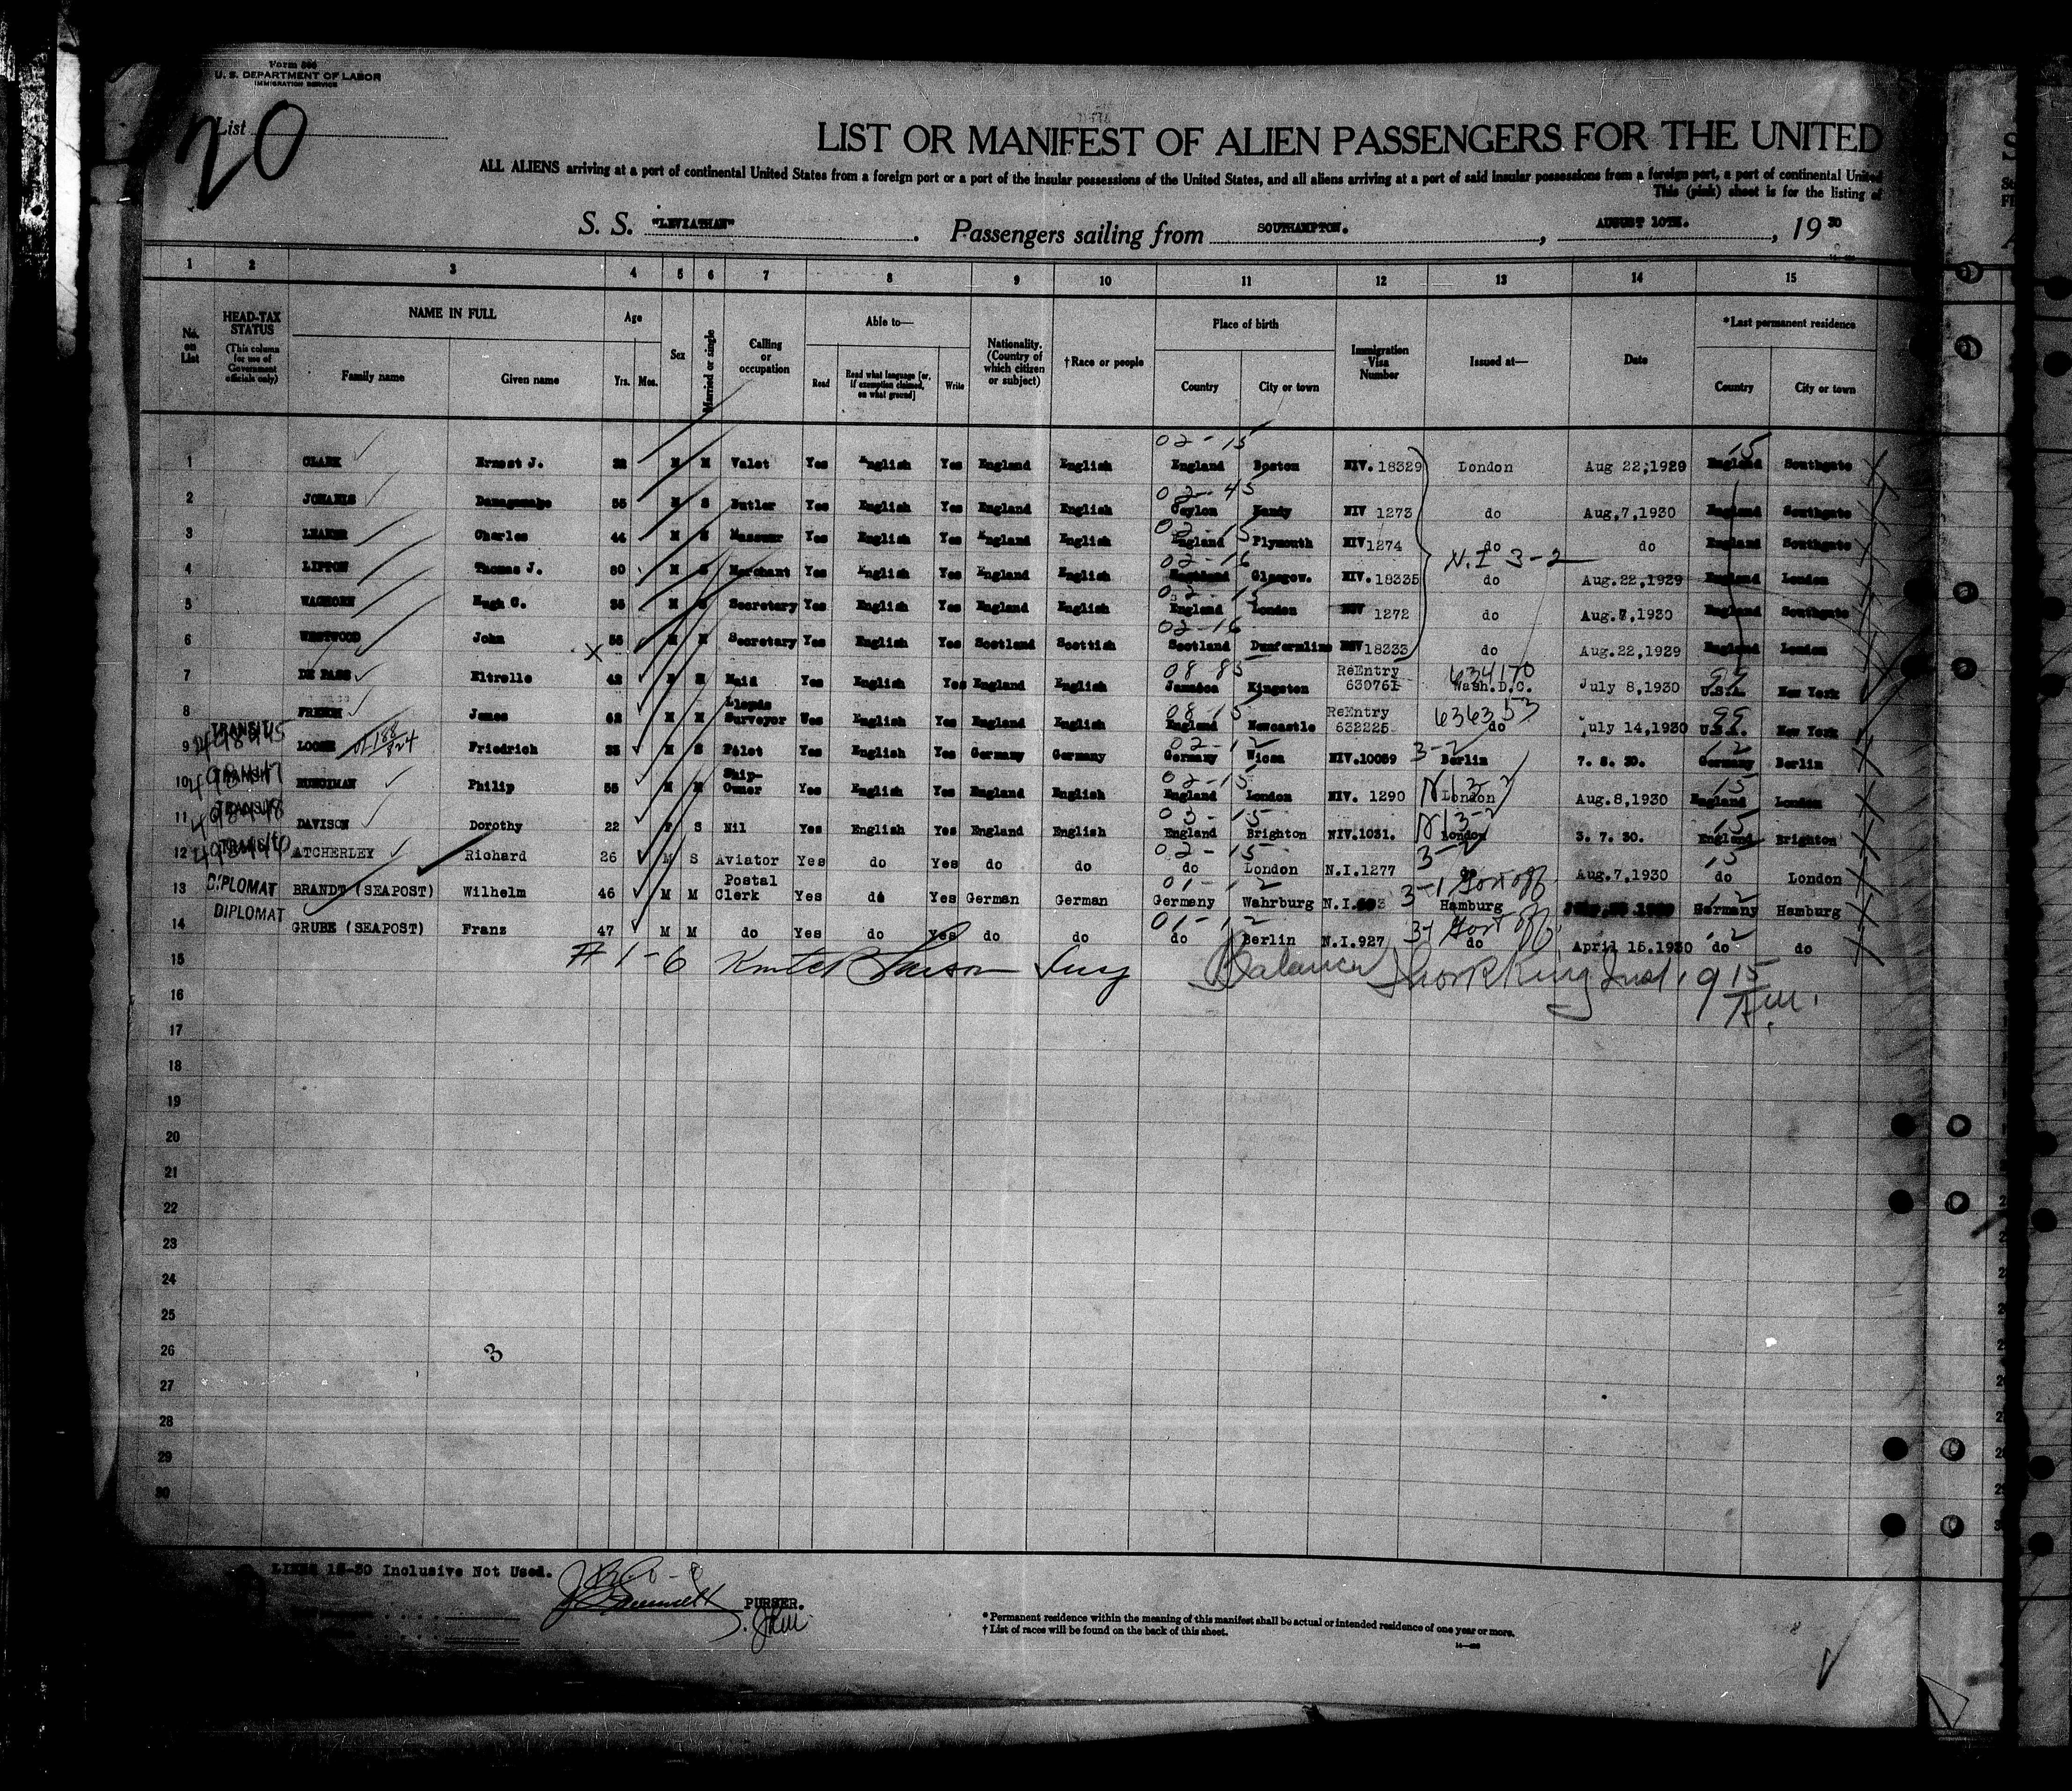 Form 500
U. S. DEPARTMENT OF LABOR
IMMIGRATION SERVICE
List 20
LIST OR MANIFEST OF ALIEN PASSENGERS FOR THE UNITED
ALL ALIENS arriving at a port of continental United States from a foreign port or a port of the insular possessions of the United States, and all aliens arriving at a port of said insular possessions from a foreign port, a port of continental United
This (pink) sheet is for the listing of
S. S. "LEVIATHAN" Passengers sailing from SOUTHAMPTON. , AUGUST 10TH. , 19 30
1 2 3 4 5 6 7 8 9 10 11 12 13 14 15
No. on List HEAD-TAX STATUS (This column for use of Government officials only) NAME IN FULL Family name Given name Age Yrs. Mos. Sex Married or single Calling or occupation Able to— Read Read what language [or, if exemption claimed, on what ground] Write Nationality. (Country of which citizen or subject) †Race or people Place of birth Country City or town Immigration Visa Number Issued at— Date *Last permanent residence Country City or town
02-15 15
1 CLARK Ernest J. M M Valet Yes English Yes England English England Boston NIV. 18329 London Aug 22,1929 England Southgate
02-45
2 55 M S Butler Yes English Yes England English Ceylon Kandy NIV 1273 do Aug,7,1930 England Southgate
02-15
3 Charles 44 M S Masseur Yes English Yes England English England Plymouth NIV 1274 do do England Southgate
02-16 N.I 3-2
4 LIPTON Thomas J. 80 M S Merchant Yes English Yes England English Scotland Glasgow. NIV. 18335 do Aug.22,1929 England London
02-15
5 WAGHORN Hugh C. M Secretary Yes English Yes England English England London NIV 1272 do Aug.7,1930 England Southgate
02-16
6 WESTWOOD John 55 M M Secretary Yes English Yes Scotland Scottish Scotland Dunfermline NIV 18333 do Aug.22,1929 England London
08-85 634170 99
7 DE PASS Eltrelle 42 Maid Yes English Yes England English Jamaica Kingston ReEntry 630761 Wash.D.C. July 8,1930 U.S.A. New York
08-15 636353 99
8 FRENCH James 62 M M Lloyds Surveyor Yes English Yes England English England Newcastle ReEntry 632225 do July 14,1930 U.S.A. New York
TRANSIT 02-12 3-2 12
9 LOOSE Friedrich M S Pilot Yes English Yes Germany Germany Germany NIV.10059 Berlin 7. 8. 30. Germany Berlin
TRANSIT 02-15 15
10 RUNCIMAN Philip 55 M M Ship-Owner Yes English Yes England English England London NIV. 1290 London Aug.8,1930 England London
TRANSIT 03-15 15
11 DAVISON Dorothy 22 F S Nil Yes English Yes England English England Brighton NIV.1031. London 3. 7. 30. England Brighton
TRANSIT 02-15 15
12 ATCHERLEY Richard 26 M S Aviator Yes do Yes do do do London N.I.1277 do Aug.7,1930 do London
DIPLOMAT 01-12 3-1 Govt off. 12
13 BRANDT (SEAPOST) Wilhelm 46 M M Postal Clerk Yes do Yes German German Germany Wahrburg N.I. Hamburg Germany Hamburg
DIPLOMAT 01-12 3-1 Govt off.
14 GRUBE (SEAPOST) Franz 47 M M do Yes do Yes do do do Berlin N.I.927 do April 15.1930 do do
15 # 1-6 Balance 9 15 A.M.
16
17
18
19
20
21
22
23
24
25
26 3
27
28
29
30
LINES 15-30 Inclusive Not Used.
PURSER.
* Permanent residence within the meaning of this manifest shall be actual or intended residence of one year or more.
† List of races will be found on the back of this sheet.